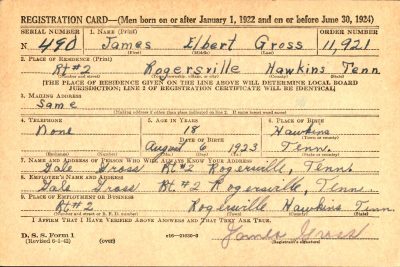 REGISTRATION CARD—(Men born on or after January 1, 1922 and on or before June 30, 1924)
SERIAL NUMBER 1. NAME (Print) ORDER NUMBER
N 490 James Elbert Gross 11,921
(First) (Middle) (Last)
2. PLACE OF RESIDENCE (Print)
Rt#2 Rogersville Hawkins Tenn
(Number and street) (Town, township, village, or city) (County) (State)
[THE PLACE OF RESIDENCE GIVEN ON THE LINE ABOVE WILL DETERMINE LOCAL BOARD
JURISDICTION; LINE 2 OF REGISTRATION CERTIFICATE WILL BE IDENTICAL]
3. MAILING ADDRESS
Same
(Mailing address if other than place indicated on line 2. If same insert word same)
4. TELEPHONE 5. AGE IN YEARS 6. PLACE OF BIRTH
None 18 Hawkins
DATE OF BIRTH (Town or county)
August 6 1923 Tenn.
(Mo.) (Day) (Yr.) (State or country)
7. NAME AND ADDRESS OF PERSON WHO WILL ALWAYS KNOW YOUR ADDRESS
Gale Gross Rt. #2 Rogersville, Tenn.
8. EMPLOYER'S NAME AND ADDRESS
Gale Gross Rt. #2 Rogersville, Tenn.
9. PLACE OF EMPLOYMENT OR BUSINESS
Rt#2 Rogersville Hawkins Tenn.
(Number and street or R. F. D. number) (Town) (County) (State)
I AFFIRM THAT I HAVE VERIFIED ABOVE ANSWERS AND THAT THEY ARE TRUE.
D. S. S. Form 1
(Revised 6-9-42) (over) 16—21630-2 James Gross
(Registrant's signature)